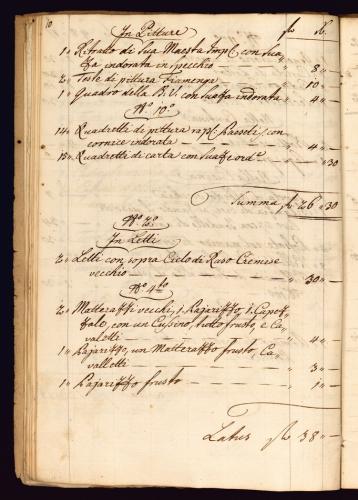 10
In Pitture fl X.
1 " Ritratto di Sua Maesta Impl. con Sua
Za indorata in specchio — " 8 " —
2 " Teste di pittura Fiamenga — " 10 " —
1 " Quadro della B. V. con suaza indorata " 4 " —
N.º 10.º
14 " Quadretti di pittura rapl. Paseli, con
cornice indorata — " 4 " —
18 " Quadretti di carta con suaze ord.e — " — " 30
Summa fl 26 " 30
In Letti
2 " Letti con sopra Cielo di Raso Cremese
vecchio — " 30 " —
N.º 4.to
2 " Matterazzi vecchi, 1. Pajarizzo, 1. Capez
zale, con un Cussino, tutto frusto, e Ca
valetti — " 4 " —
1 " Pajarizzo, un Matterazzo frusto, Ca
valletti — " 3 " —
1 " Pajarizzo frusto — " 1 " —
Latus fl 38 " —